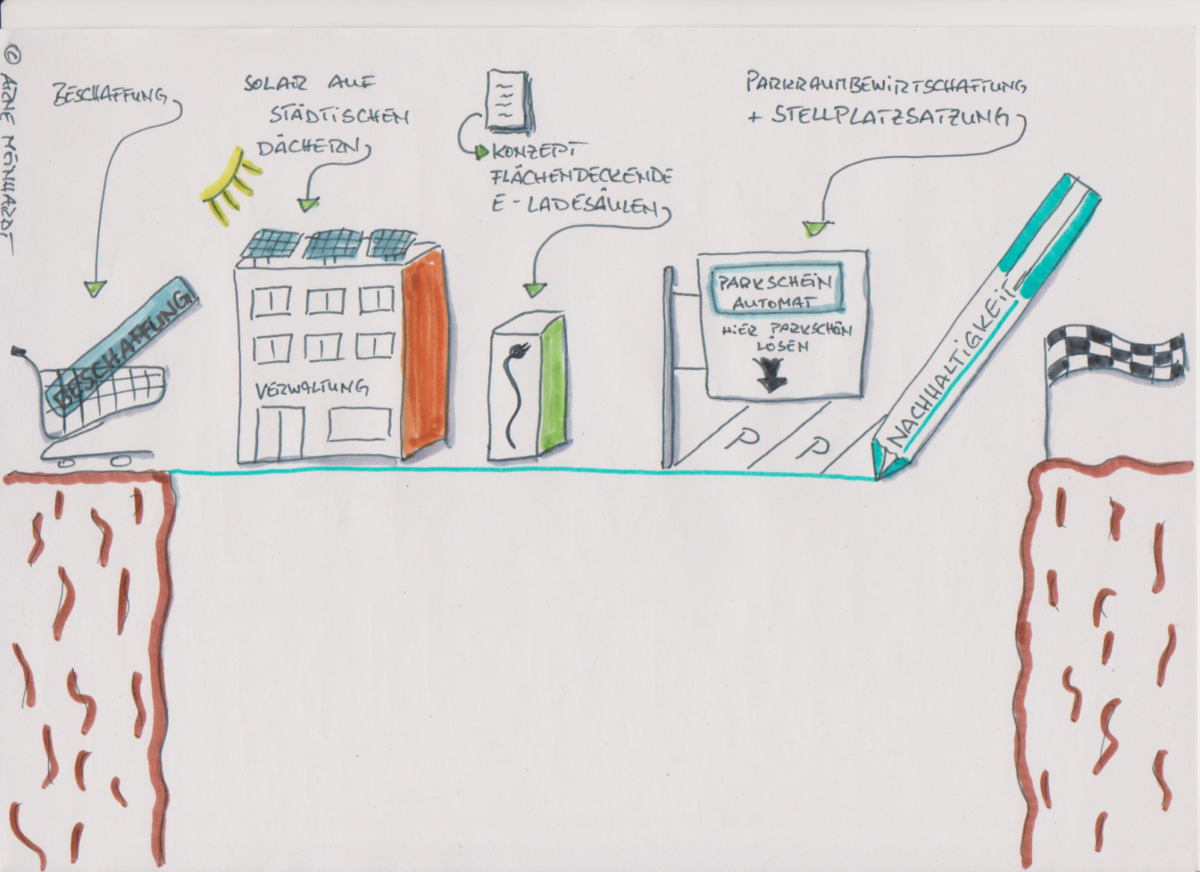 © ARNE MEINHARDT
BESCHAFFUNG
SOLAR AUF
STÄDTISCHEN
DÄCHERN
KONZEPT
FLÄCHENDECKENDE
E-LADESÄULEN
PARKRAUMBEWIRTSCHAFTUNG
+ STELLPLATZSATZUNG
BESCHAFFUNG
VERWALTUNG
PARKSCHEIN
AUTOMAT
HIER PARKSCHEIN
LÖSEN
P P
NACHHALTIGKEIT